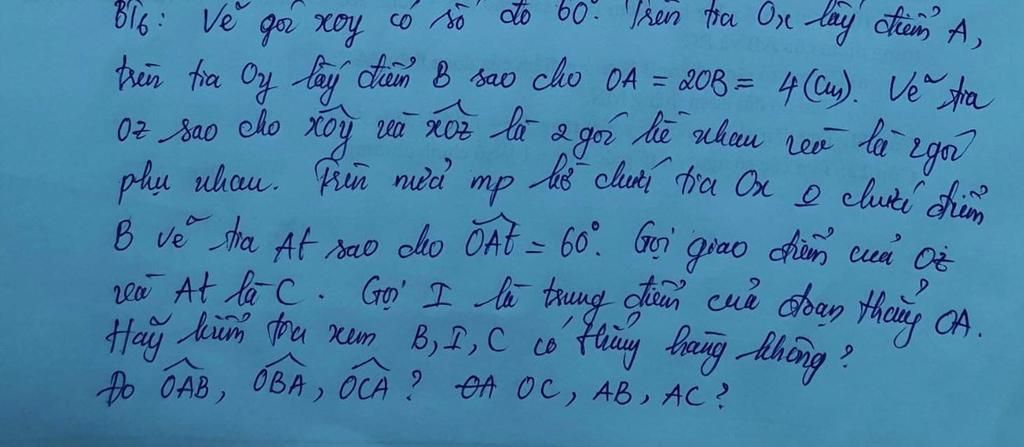 BT6: Vẽ góc xoy có số đo 60°. Trên tia Ox lấy điểm A,
trên tia Oy lấy điểm B sao cho OA = 2OB = 4 (cm). Vẽ tia
Oz sao cho xOy và xOz là 2 góc kề nhau và là 2 góc
phụ nhau. Trên nửa mp bờ chứa tia Ox chứa điểm
B vẽ tia At sao cho OAt = 60°. Gọi giao điểm của Oz
và At là C. Gọi I là trung điểm của đoạn thẳng OA.
Hãy kiểm tra xem B, I, C có thẳng hàng không?
Đo OAB, OBA, OCA? OA OC, AB, AC?